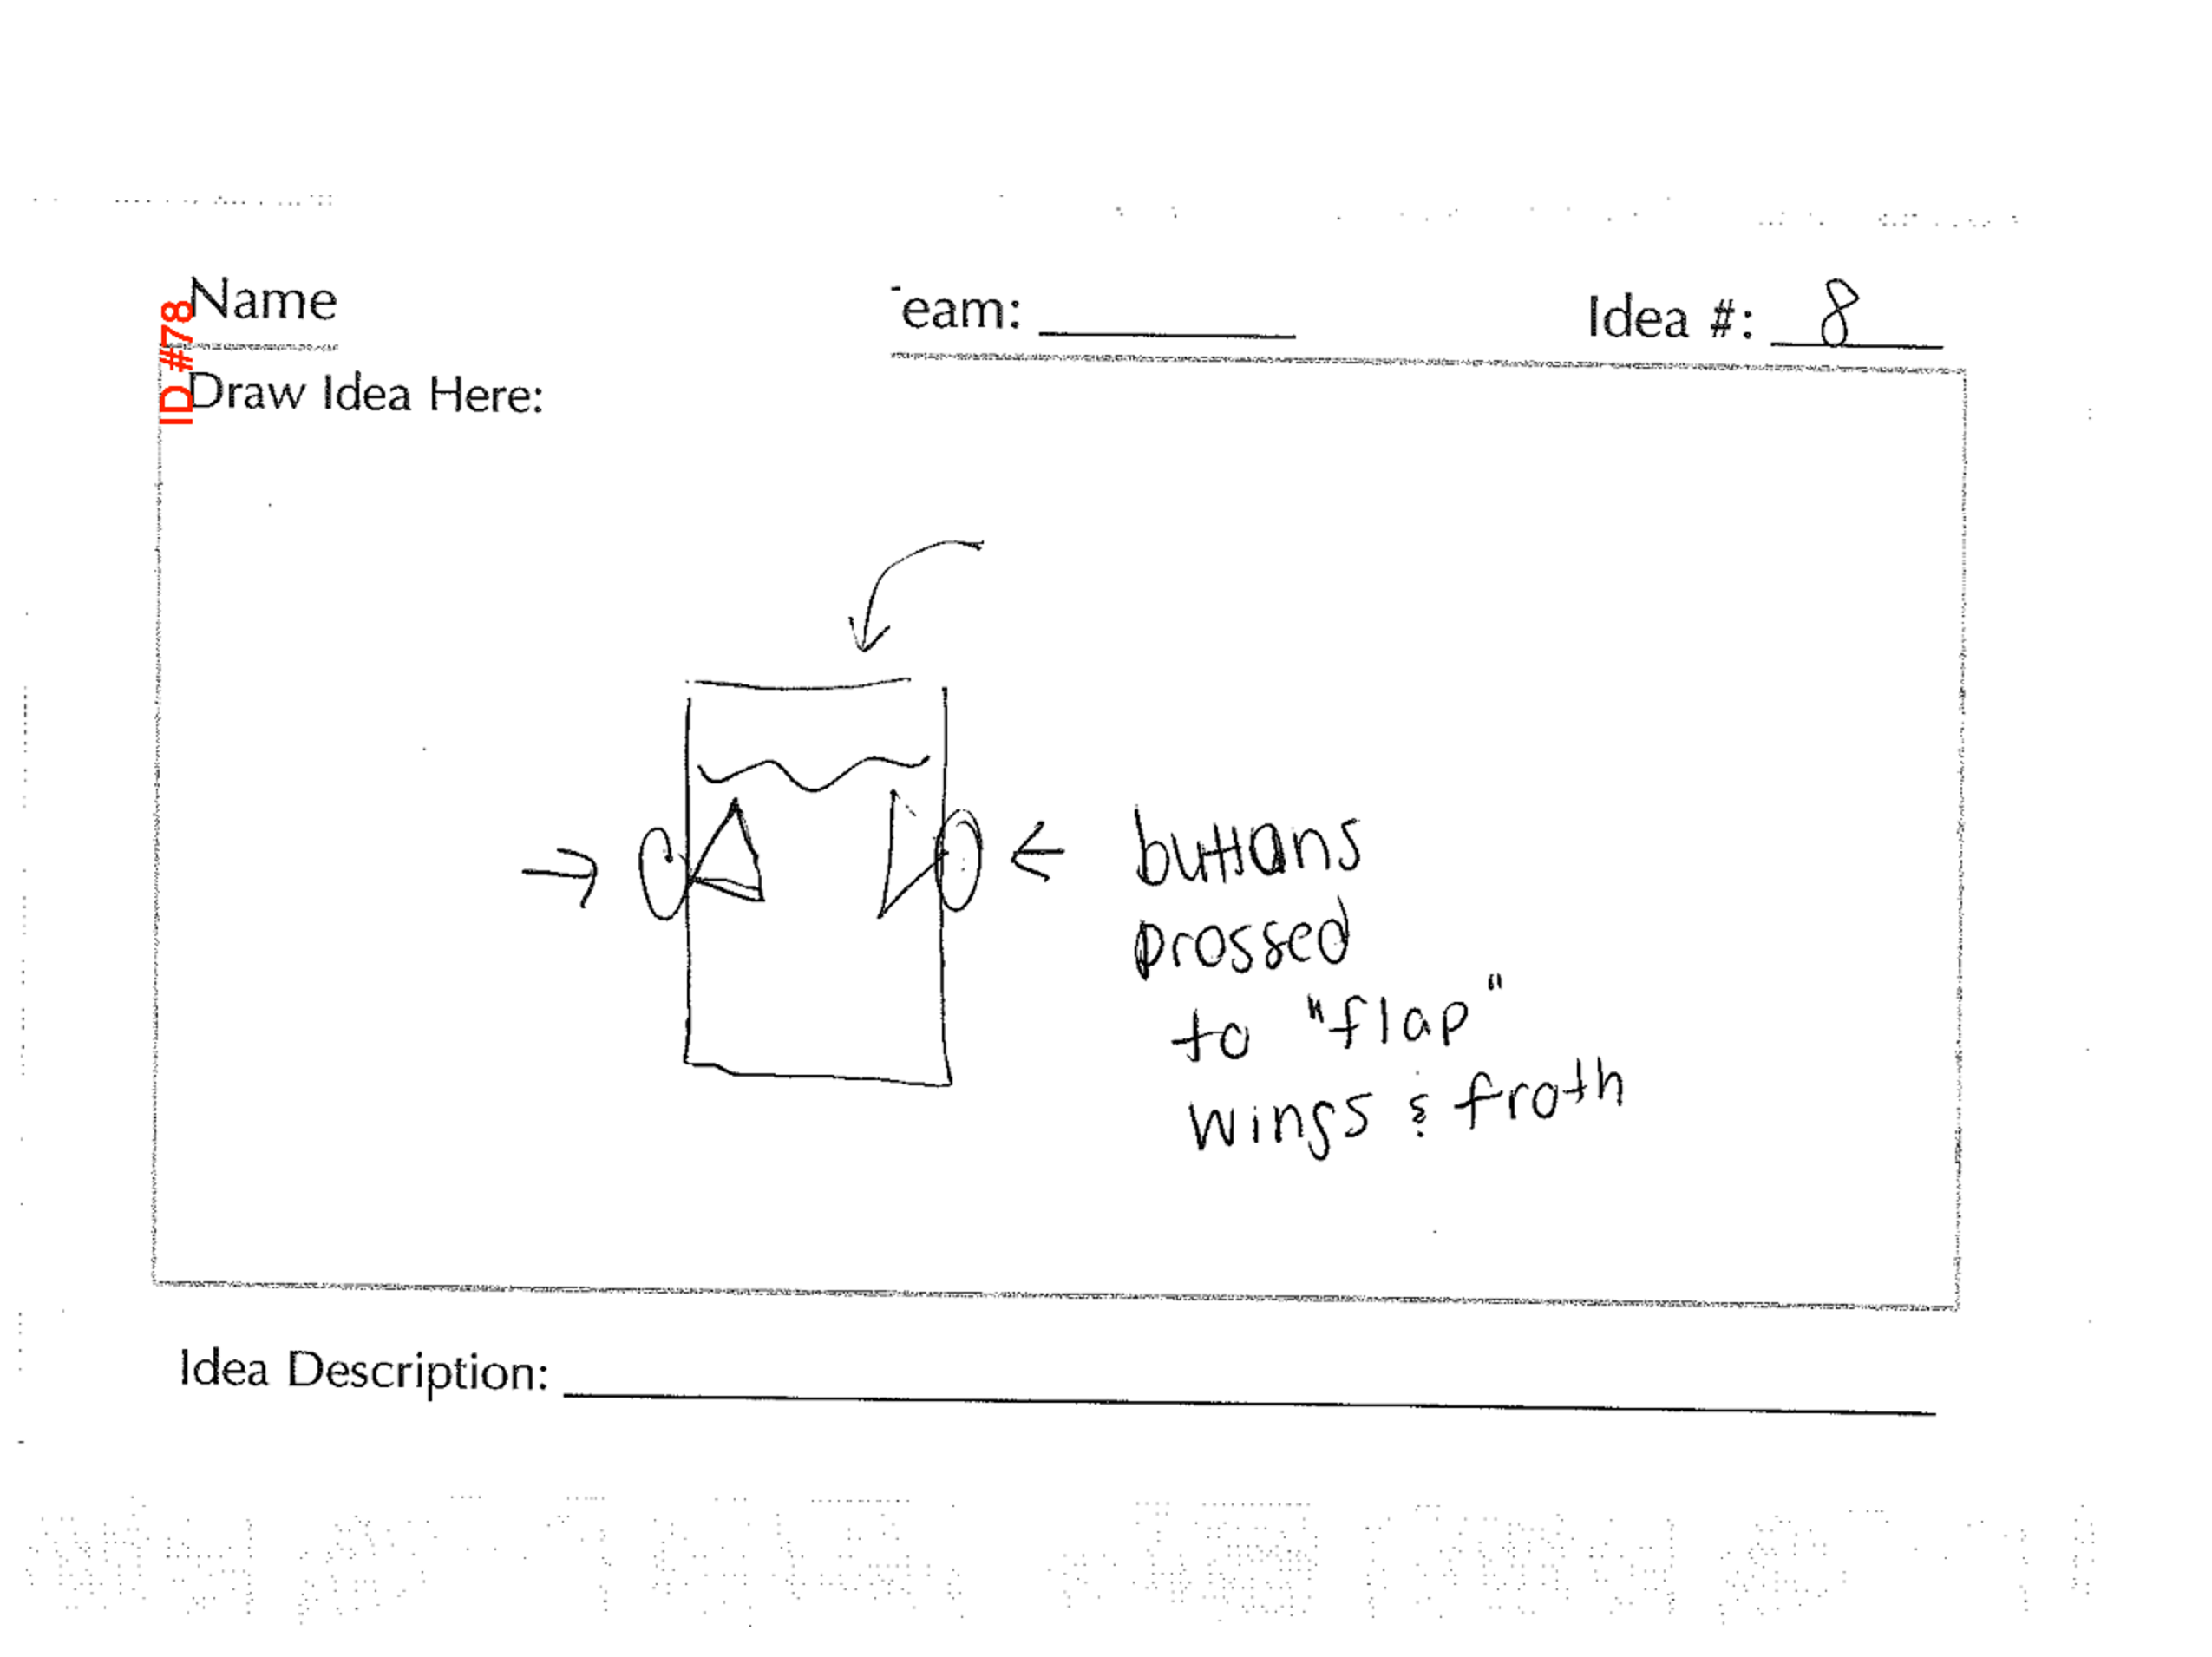 Name
eam:
Idea #: 8
ID #78
Draw Idea Here:
buttons
pressed
to "flap"
wings & froth
Idea Description: